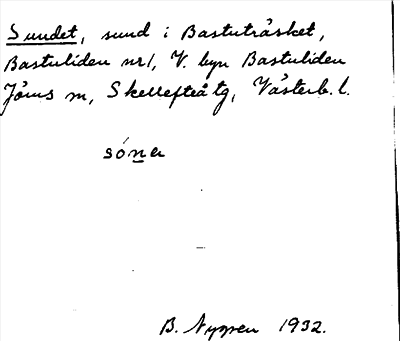 Sundet, sund i Bastuträsket,
Bastuliden nr1, V. byn Bastuliden
Jörns sn, Skellefteå tg, Västerb. l.
sóna
B. Nygren 1932.